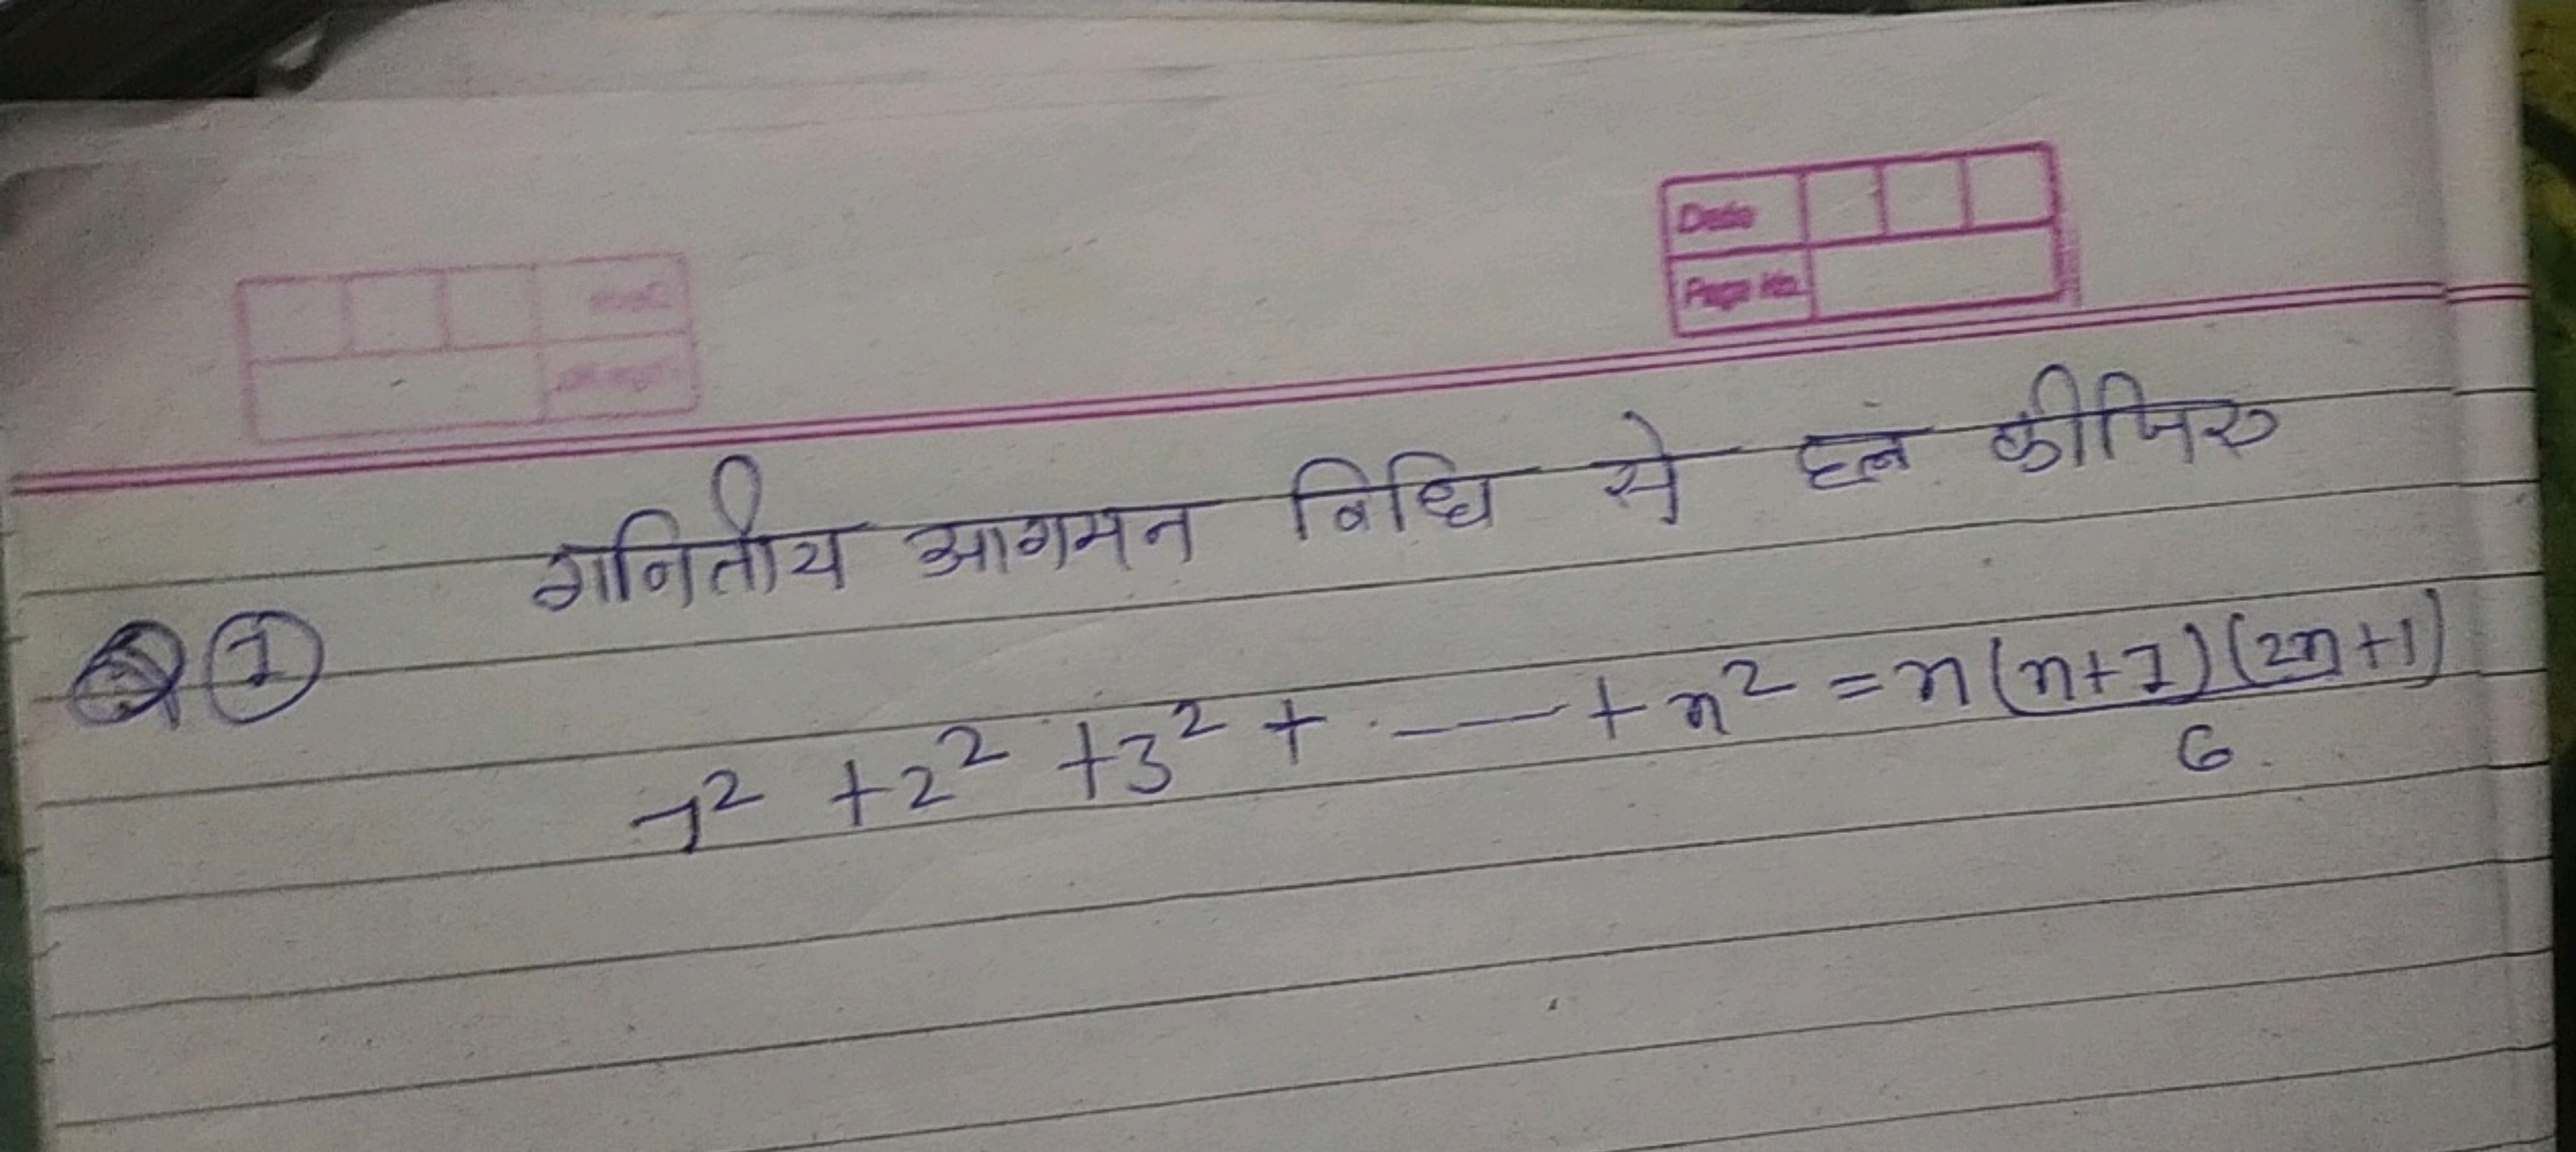 Date
Page No.
गनितीय आगमन विधि से हल कीजिए
① 1² + 2² + 3² + ---- + n² = n(n+1)(2n+1)
6